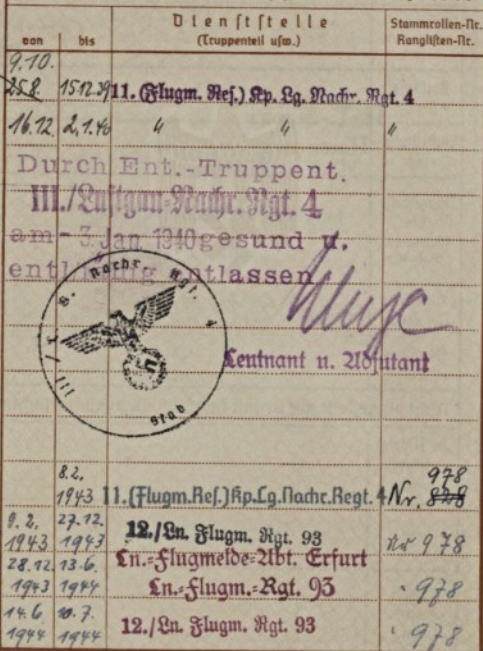 Dienststelle
von bis (Truppenteil usw.) Stammrollen-Nr. Ranglisten-Nr.
9.10.
25.8. 15.12.39 11. (Flugm. Res.) Kp. Lg. Nachr. Rgt. 4
16.12. 2.1.40 " " "
Durch Ent.-Truppent.
III./Luftgau-Nachr. Rgt. 4
am - 3. Jan 1940 gesund u.
entlassen
III / L. G. Nachr. Rgt. 4
Stab
Leutnant u. Adjutant
8.2. 978
1943 11. (Flugm. Res.) Kp. Lg. Nachr. Regt. 4 Nr. 828
9.2. 27.12.
1943 1943 12./Ln. Flugm. Rgt. 93 Nr 978
28.12. 13.6. Ln.-Flugmelde-Abt. Erfurt
1943 1944 Ln.-Flugm.-Rgt. 93 " 978
14.6 10.7.
1944 1944 12./Ln. Flugm. Rgt. 93 " 978